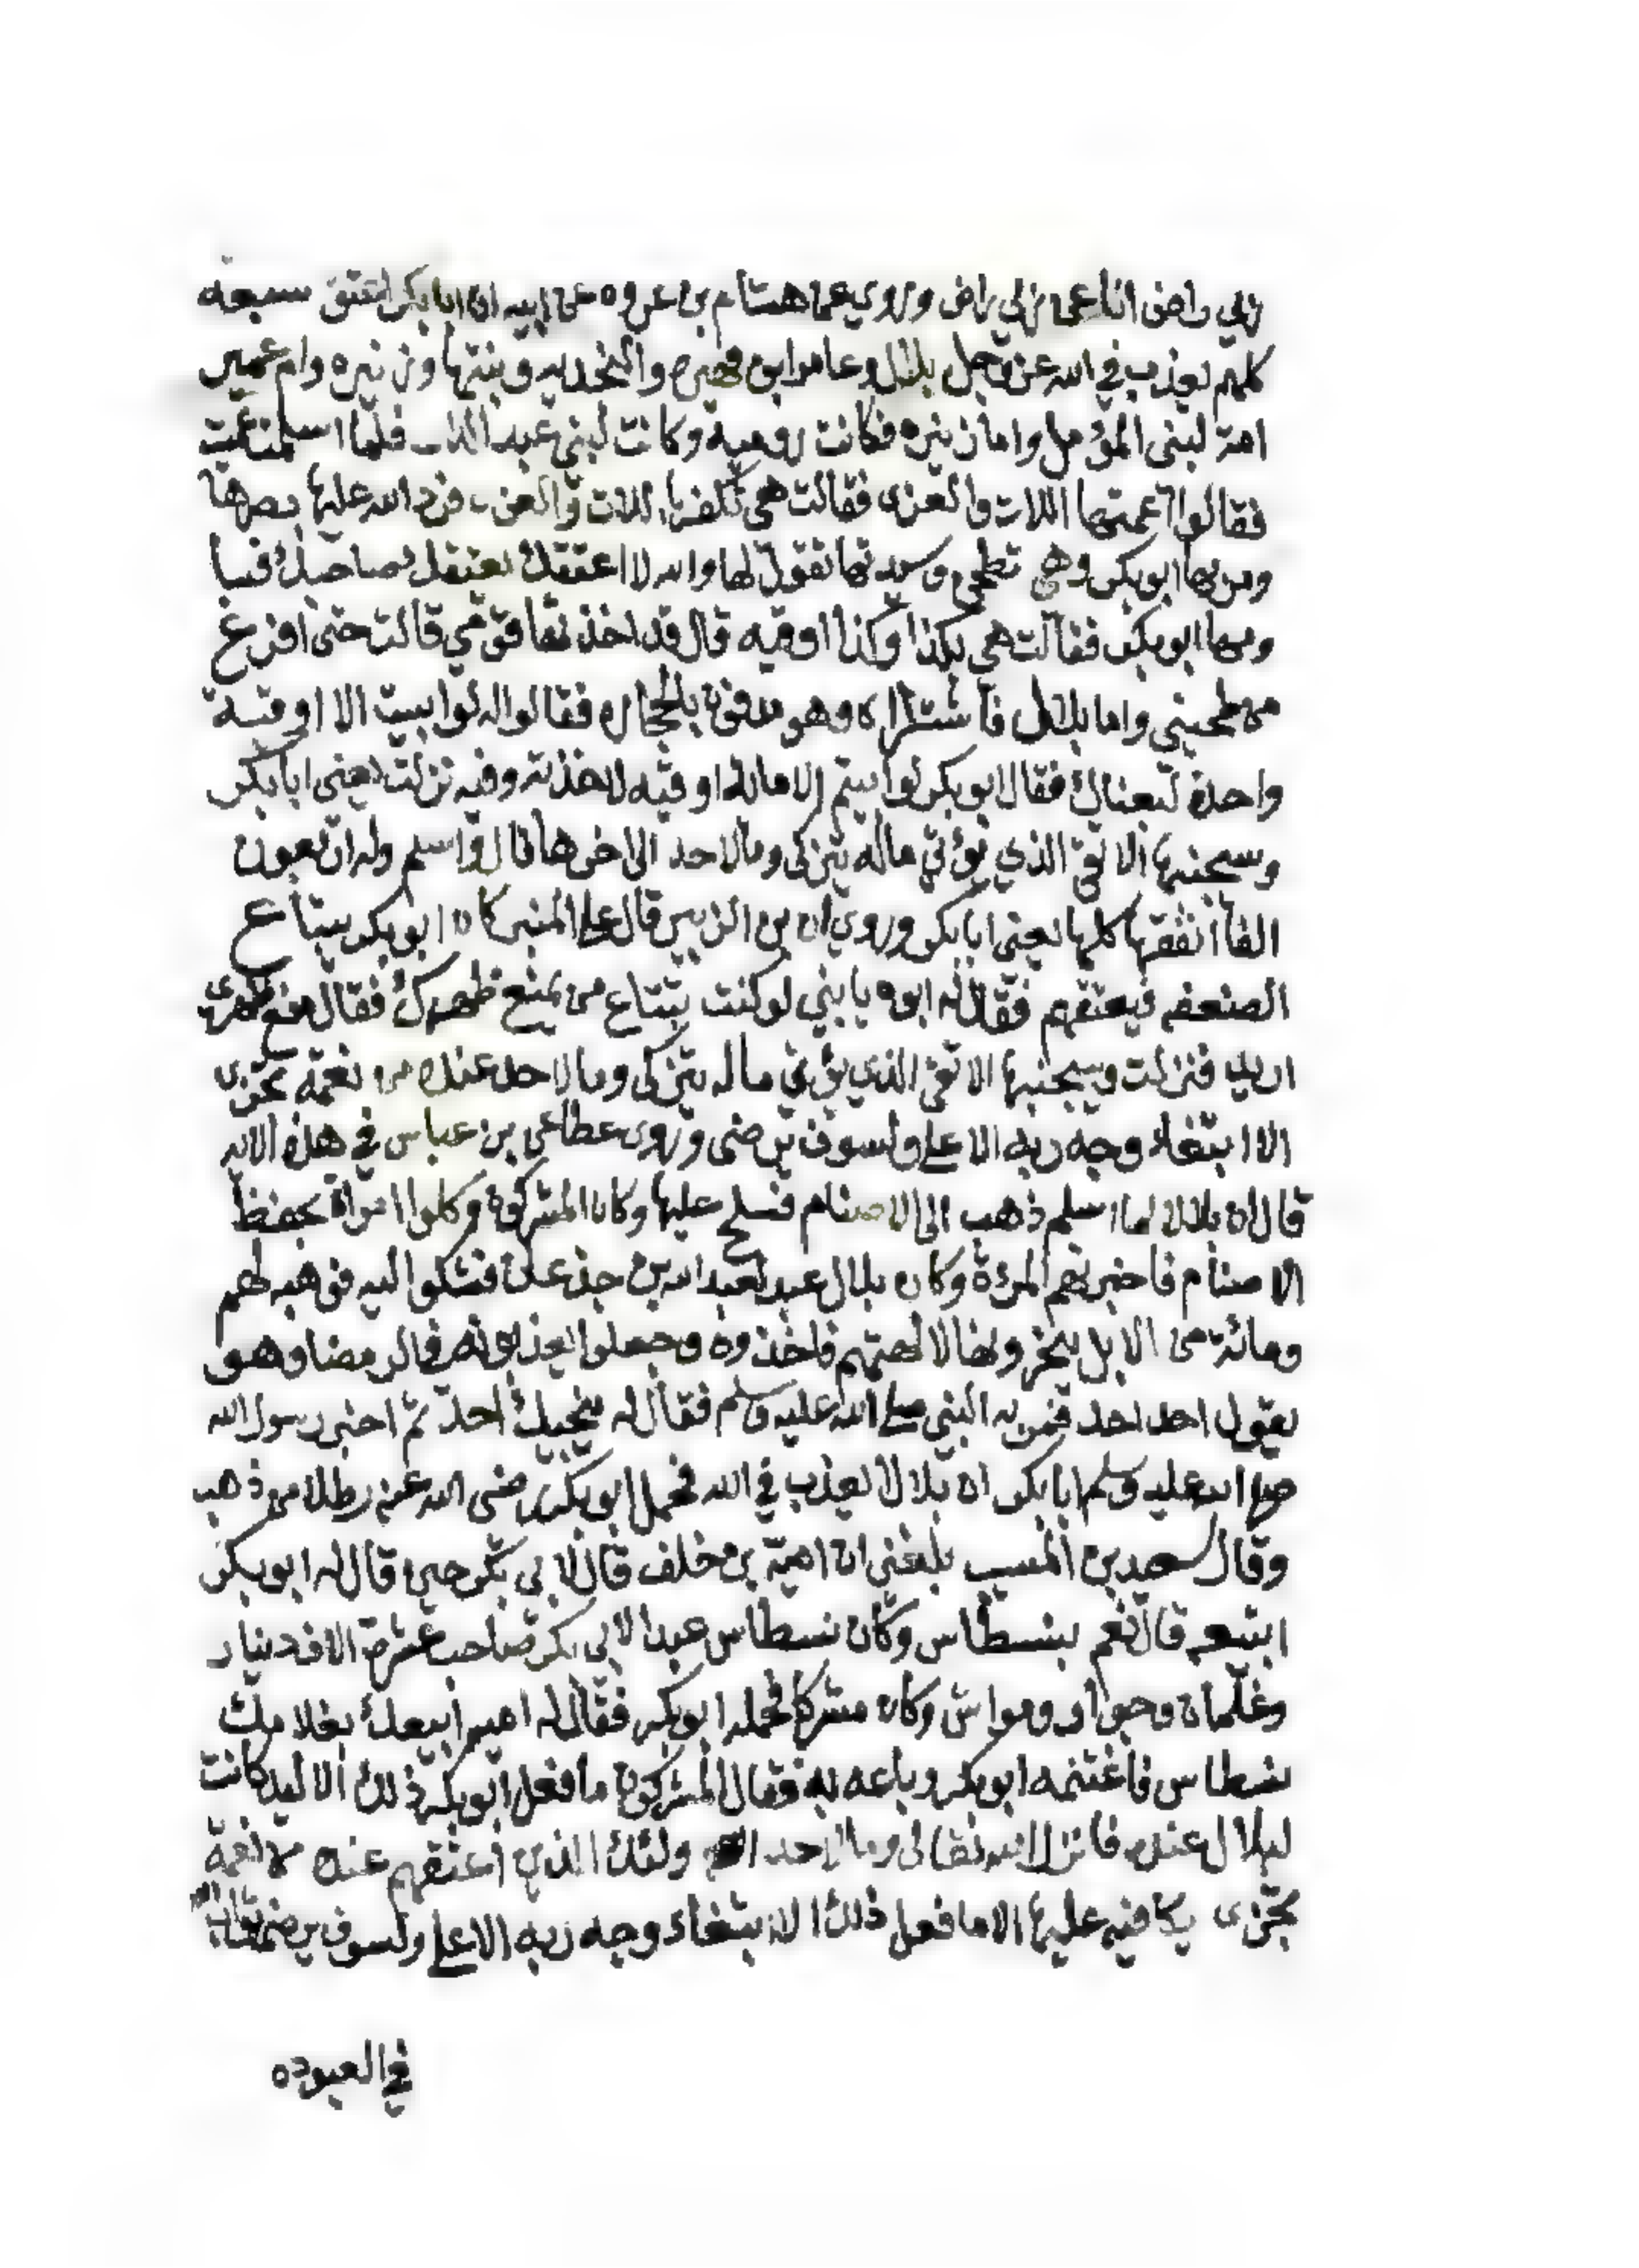 ربي راض انا عن ربي راض وروي عن هشام بن عروه عن ابيه ان ابا بكر اعتق سبعه
كلهم يعذب في الله عز وجل بلال وعامر ابن فهيره والنخديه وبنتها وزنيره وام عميس
امة لبني المؤمل واما زنيره فكانت روميه وكانت لبني عبد الدار فلما اسلمت عميت
فقالوا اعمتها اللات والعزى فقالت هي تكفر باللات والعزى فرد الله عليها بصرها
ومر بها ابو بكر وهي تطحن وسيدتها تقول لها والله لا اعتقك يعتقك صاحبك فسا
ومها ابو بكر فقالت هي بكذا وكذا اوقيه قال قد اخذتها قومي قالت حتى افرغ
من طحيني واما بلال فاشتراه وهو مدفون بالحجاره فقالوا له لو ابيت الا اوقيه
واحدة لبعناك فقال ابو بكر لو ابيتم الا مائة اوقيه لاخذته وفيه نزلت يعني ابا بكر
وسيجنبها الاتقى الذي يؤتي ماله يتزكى وما لاحد الى اخرها قال واسلم وله اربعون
الفا انفقها كلها يعني ابا بكر وروي ان بن الزبير قال على المنبر كان ابو بكر يبتاع
الضعفه فيعتقهم فقال له ابوه يا بني لو كنت تبتاع من يمنع ظهرك فقال منع ظهري
اريد فنزلت وسيجنبها الاتقى الذي يؤتي ماله يتزكى وما لاحد عنده من نعمة تجزى
الا ابتغاء وجه ربه الاعلى ولسوف يرضى وروى عطا عن بن عباس في هذه الايه
قال ان بلالا لما اسلم ذهب الى الاصنام فسلح عليها وكان المشركون وكلوا امراة تحفظ
الاصنام فاخبرتهم المرءة وكان بلال عبد لعبد الله بن جذعان فشكوا اليه فوهبه لهم
ومائة من الابل ينحرونها لالهتهم فاخذوه وجعلوا يعذبونه في الرمضا وهو
يقول احد احد فمر به النبي صلى الله عليه وسلم فقال له ينجيك احد ثم اخبر رسول الله
صلى الله عليه وسلم ابا بكر ان بلالا يعذب في الله فحمل ابو بكر رضى الله عنه رطلا من ذهب
وقال سعيد بن المسيب بلغني ان امية بن خلف قال لابي بكر حين قال له ابو بكر
ابتيعه قال نعم بنسطاس وكان نسطاس عبدا لابي بكر صاحب عشرة الاف دينار
وغلمان وجوار ومواش وكان مشركا فحمله ابو بكر فقال له اميه ابيعك بغلامك
نسطاس فاغتنمه ابو بكر وباعه به فقال المشركون ما فعل ابو بكر ذلك الا ليد كانت
لبلال عنده فانزل الله تعالى وما لاحد ولئك الذين اعتقهم عنده من نعمة
تجزى يكافيه عليها الا ما فعل ذلك الا ابتغاء وجه ربه الاعلى ولسوف يرضى
في العبوده